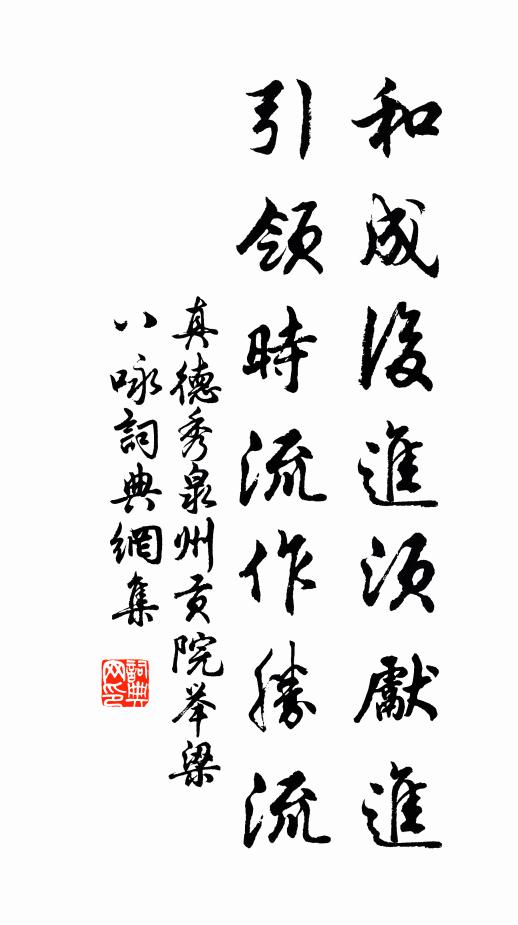 和成後進須獻進
引領時流作勝流
真德秀泉州貢院举梁
八咏詞典網集
詞典网印